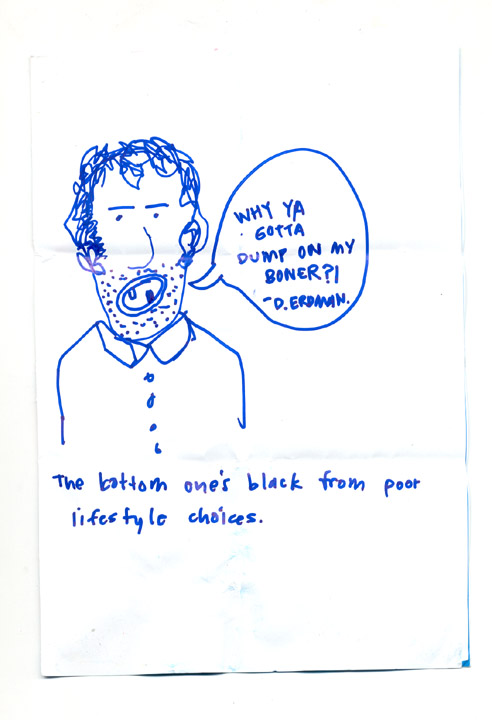 WHY YA
GOTTA
DUMP ON MY
BONER?!
-D. ERDMAN.
The bottom one's black from poor
lifestyle choices.